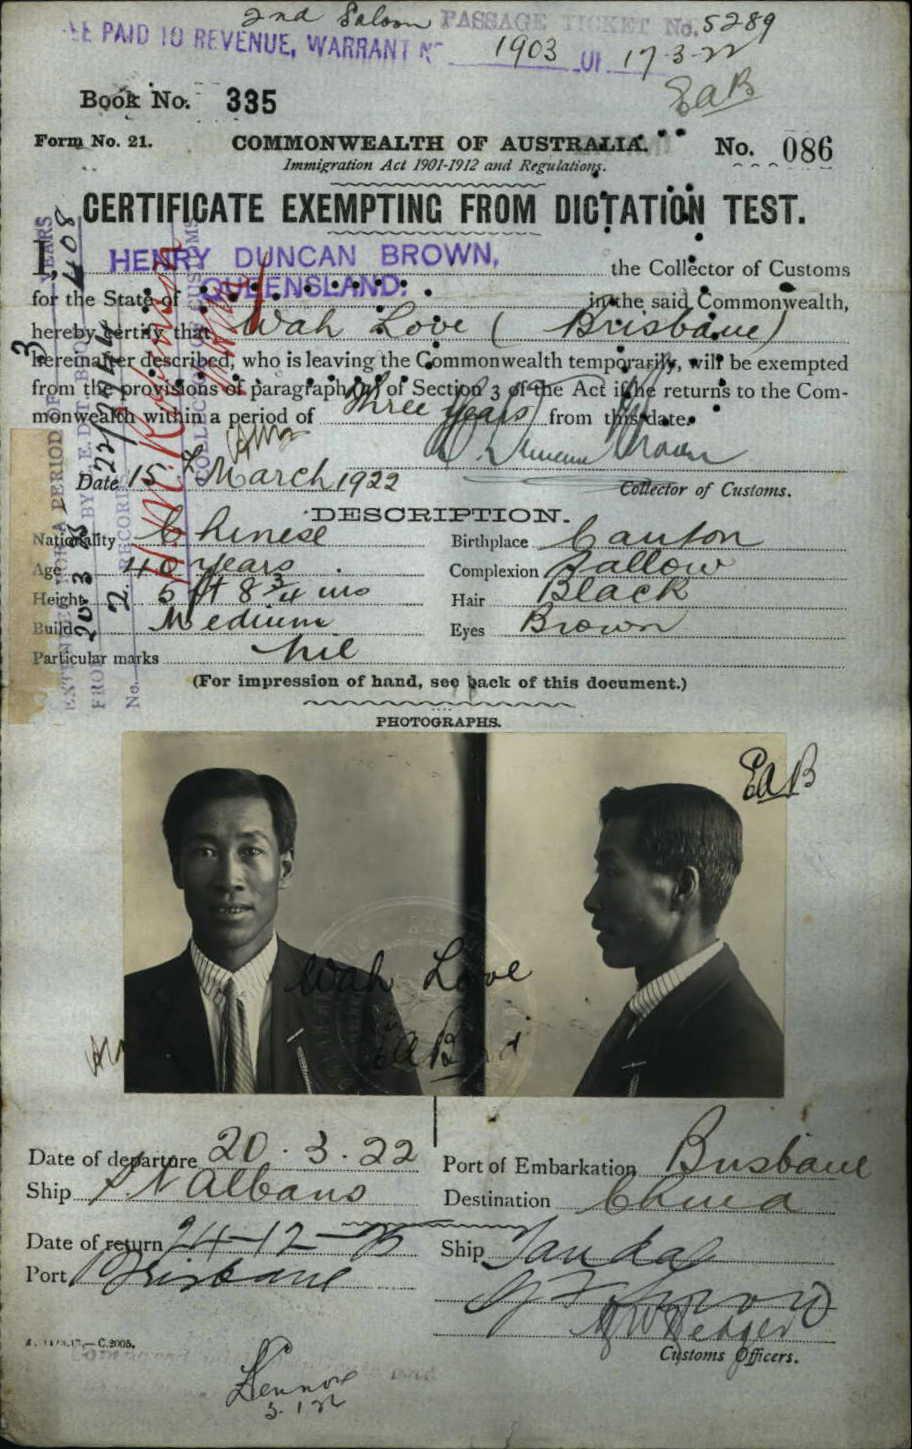 2nd Saloon PASSAGE TICKET No. 5289
PAID TO REVENUE, WARRANT No 1903 OF 17-3-22
EaB
Book No. 335
Form No. 21.
COMMONWEALTH OF AUSTRALIA.
No. 086
Immigration Act 1901-1912 and Regulations.
CERTIFICATE EXEMPTING FROM DICTATION TEST.
I, HENRY DUNCAN BROWN, the Collector of Customs
for the State of QUEENSLAND. in the said Commonwealth,
hereby certify that Wah Love (Brisbane)
hereinafter described, who is leaving the Commonwealth temporarily, will be exempted
from the provisions of paragraph (a) of Section 3 of the Act if he returns to the Com-
monwealth within a period of Three years from this date.
H. Duncan Brown
Date 15th March 1922
Collector of Customs.
DESCRIPTION.
Nationality Chinese
Birthplace Canton
Age 40 years
Complexion Sallow
Height 5 ft 8 3/4 ins
Hair Black
Build Medium
Eyes Brown
Particular marks nil
(For impression of hand, see back of this document.)
PHOTOGRAPHS.
EaB
Wah Love
EaB
Date of departure 20.3.22
Port of Embarkation Brisbane
Ship St Albans
Destination China
Date of return 24-12-
Ship Tanda
Port Brisbane
Customs Officers.
C.2005.
Lennox